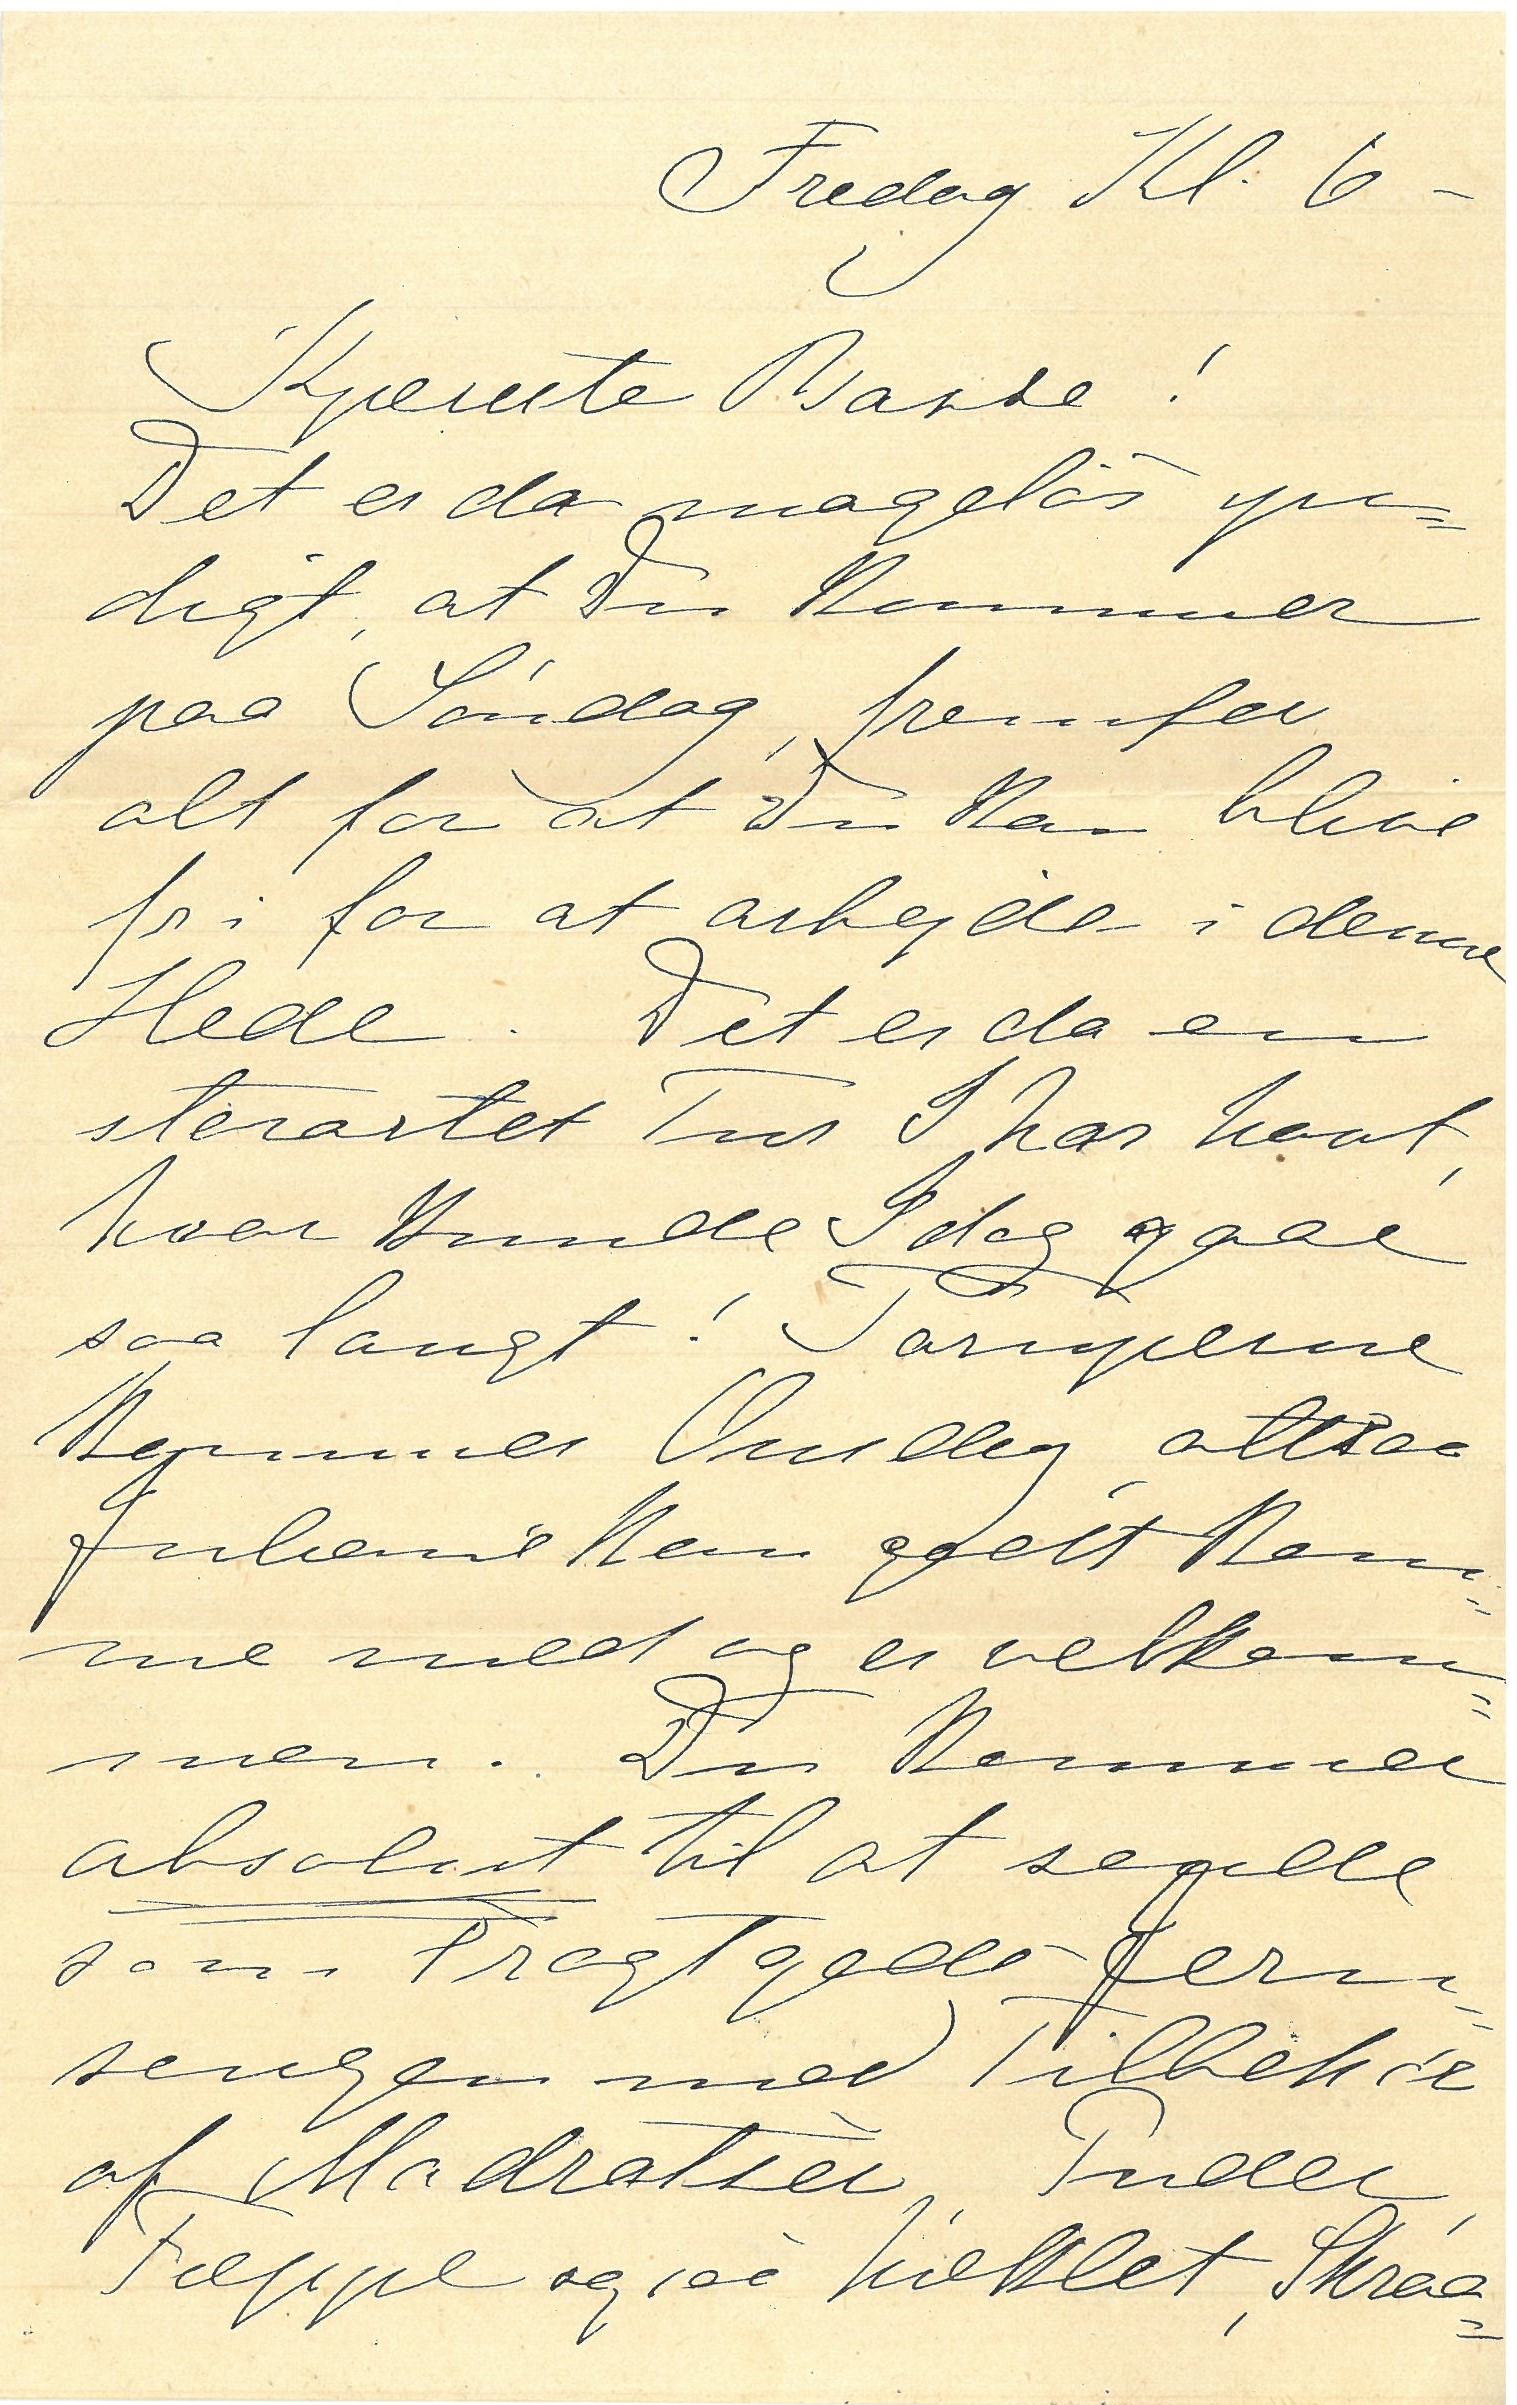 Fredag Kl. 6 –
Kjæreste Basse!
Det er da mageløs yn=
digt, at Du kommer
paa Søndag, fremfor
alt for at Du kan blive
fri for at arbejde i denne
Hede. Det er da en
storartet Tur I har havt,
hvor kunde I dog gaae
saa langt! Tornperne
kommer Onsdag, altsaa
Juliane kan godt kom=
me med og er velkom=
men. Du kommer
absolut til at sende
som Fragtgods Jern=
sengen med Tilbehør
af Madratser, Puder,
Tæppe og saa hæklet, Skraa=